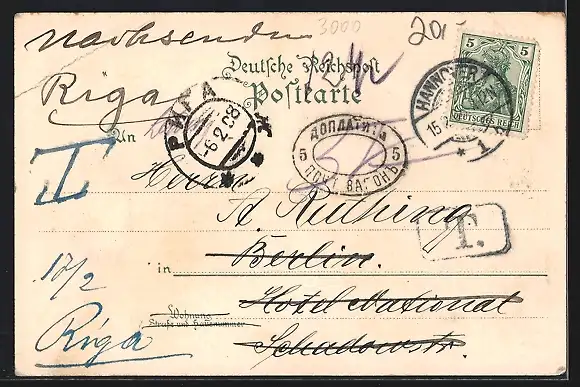 3000
20.-
Nachsenden
Riga
Deutsche Reichspost
Postkarte
5 5
DEUTSCHES REICH
HANNOVER
15.2
* 1
РИГА
-6.2.08
ДОПЛАТИТЬ
5 5
ПОЧТ. ВАГОНЪ
An
T
Herrn
A.
T.
in Berlin.
Hotel National
Wohnung
Straße und Hausnummer
Schadowstr.
18/2
Riga